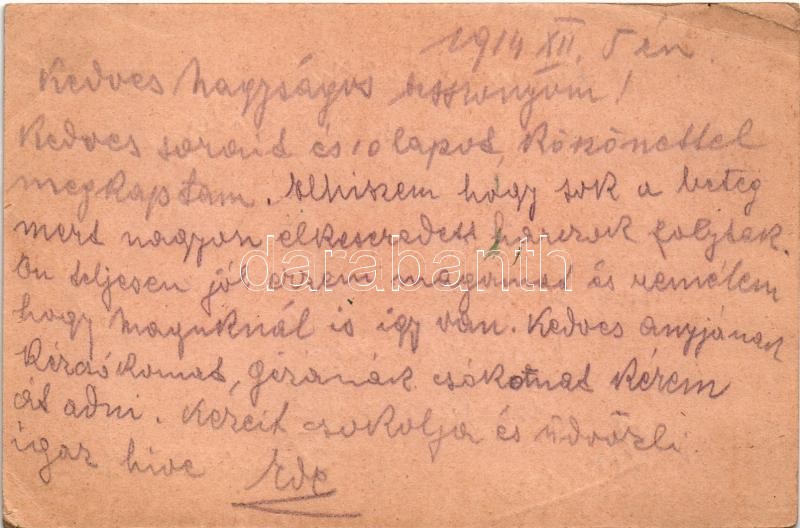 1914 XII. 5 én.
Kedves Nagyságos Asszonyom!
Kedves sorait és 10 lapot, köszönettel
megkaptam. Elhiszem hogy sok a beteg
mert nagyon elkeseredett harcok folytak.
Én teljesen jól érzem magamat és remélem
hogy Maguknál is így van. Kedves anyjának
kézcsókomat, Gizának csókomat kérem
át adni. Kezeit csokolja és üdvözli
igaz hive
darabanth